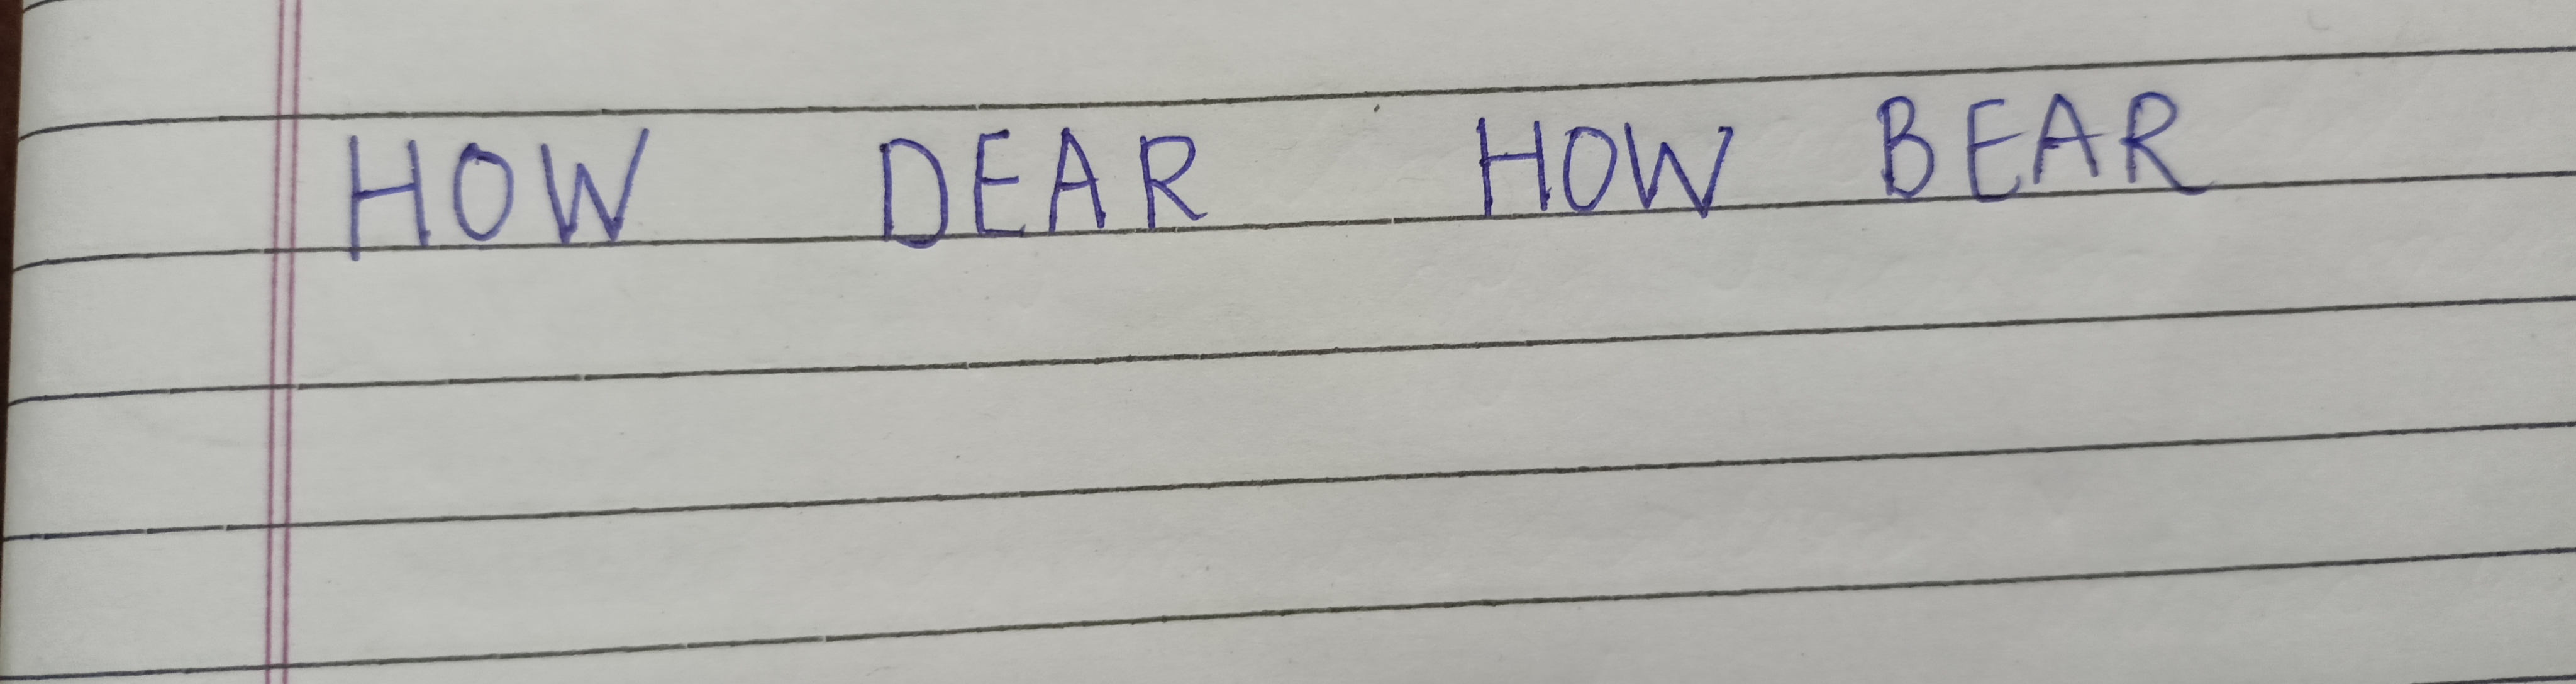 HOW DEAR HOW BEAR